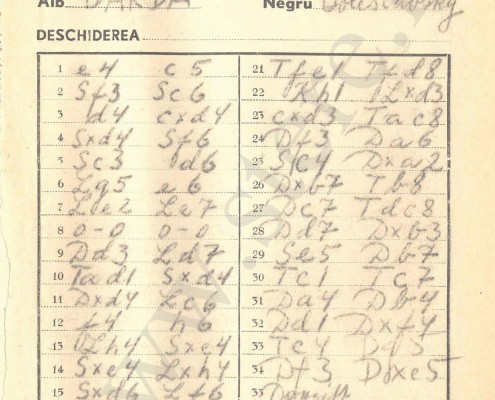 Alb BARDA Negru Doleschovsky
DESCHIDEREA
1 e4 c5
2 Sf3 Sc6
3 d4 cxd4
4 Sxd4 Sf6
5 Sc3 d6
6 Lg5 e6
7 Le2 Le7
8 0-0 0-0
9 Dd3 Ld7
10 Tad1 Sxd4
11 Dxd4 Lc6
12 f4 h6
13 Lh4 Sxe4
14 Sxe4 Lxh4
15 Sxd6 Lf6
21 Tfe1 Tfd8
22 Kh1 Lxd3
23 cxd3 Tac8
24 Df3 Da6
25 Sc4 Dxa2
26 Dxb7 Tb8
27 Dc7 Tdc8
28 Dd7 Dxb3
29 Se5 Db7
30 Tc1 Tc7
31 Da4 Db4
32 Dd1 Dxf4
33 Tc4
34 Df3 Dxe5
35